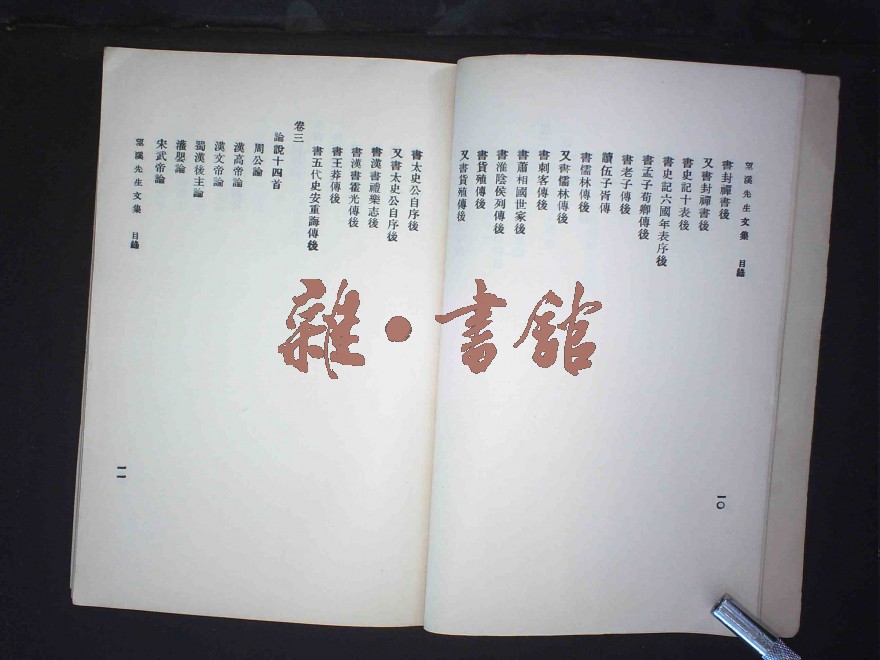 望溪先生文集 目錄
書封禪書後
又書封禪書後
書史記十表後
書史記六國年表序後
書孟子荀卿傳後
書老子傳後
讀伍子胥傳
書儒林傳後
又書儒林傳後
書刺客傳後
書蕭相國世家後
書淮陰侯列傳後
書貨殖傳後
又書貨殖傳後
一〇
書太史公自序後
又書太史公自序後
書漢書禮樂志後
書漢書霍光傳後
書王莽傳後
書五代史安重誨傳後
卷三
論說十四首
周公論
漢高帝論
漢文帝論
蜀漢後主論
灌嬰論
宋武帝論
望溪先生文集 目錄
一一
雜•書館